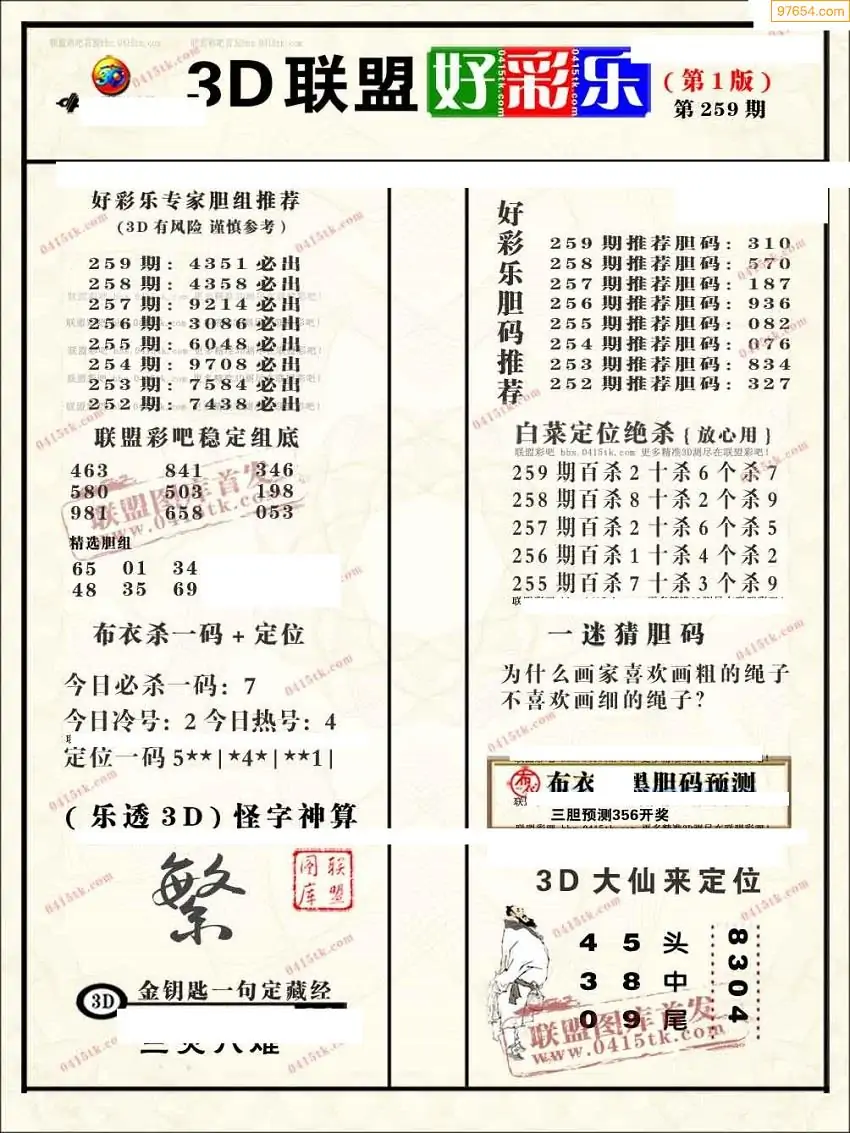 97654.com
3D联盟好彩乐
(第1版)
第259期
好彩乐专家胆组推荐
(3D有风险 谨慎参考)
259期:4351必出
258期:4358必出
257期:9214必出
256期:3086必出
255期:6048必出
254期:9708必出
253期:7584必出
252期:7438必出
联盟彩吧稳定组底
463 841 346
580 503 198
981 658 053
精选胆组
65 01 34
48 35 69
布衣杀一码+定位
今日必杀一码:7
今日冷号:2 今日热号:4
定位一码5**|*4*|**1|
(乐透3D)怪字神算
繁
联盟图库
3D
金钥匙一句定藏经
好彩乐胆码推荐
259期推荐胆码:310
258期推荐胆码:570
257期推荐胆码:187
256期推荐胆码:936
255期推荐胆码:082
254期推荐胆码:076
253期推荐胆码:834
252期推荐胆码:327
白菜定位绝杀{放心用}
联盟彩吧 bbs.0415tk.com 更多精准3D测尽在联盟彩吧!
259期百杀2十杀6个杀7
258期百杀8十杀2个杀9
257期百杀2十杀6个杀5
256期百杀1十杀4个杀2
255期百杀7十杀3个杀9
一迷猜胆码
为什么画家喜欢画粗的绳子
不喜欢画细的绳子?
布衣 胆码预测
三胆预测356开奖
3D大仙来定位
4 5 头
3 8 中
0 9 尾
8304
联盟图库首发
www.0415tk.com